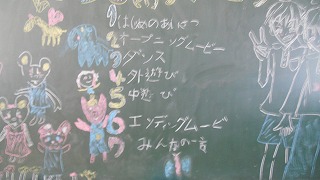 1 はじめのあいさつ
2 オープニングムービー
3 ダンス
4 外遊び
5 中遊び
6 エンディングムービー
7 みんなの一言